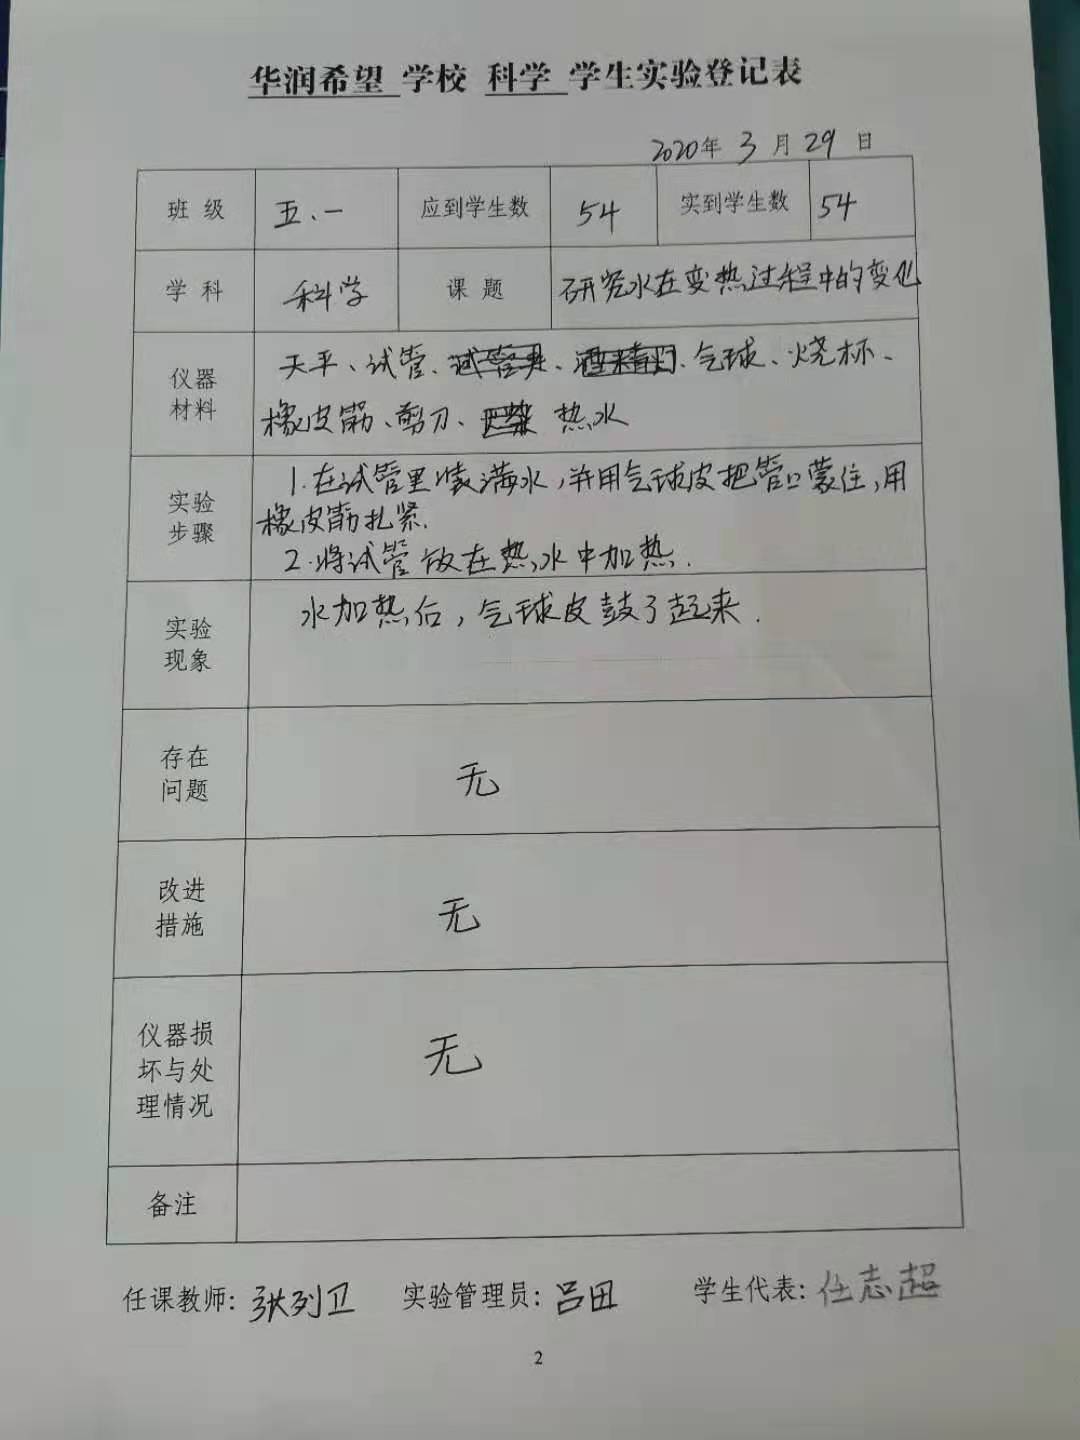 华润希望 学校 科学 学生实验登记表
2020年 3 月 29 日
班 级 五、一 应到学生数 54 实到学生数 54
学 科 科学 课 题 研究水在变热过程中的变化
仪器
材料
天平、试管、试管夹、酒精灯、气球、烧杯、
橡皮筋、剪刀、 热水
实验
步骤
1.在试管里装满水,并用气球皮把管口蒙住,用
橡皮筋扎紧.
2.将试管放在热水中加热.
实验
现象
水加热后,气球皮鼓了起来.
存在
问题
无
改进
措施
无
仪器损
坏与处
理情况
无
备注
任课教师: 张列卫 实验管理员: 吕田 学生代表: 任志超
2